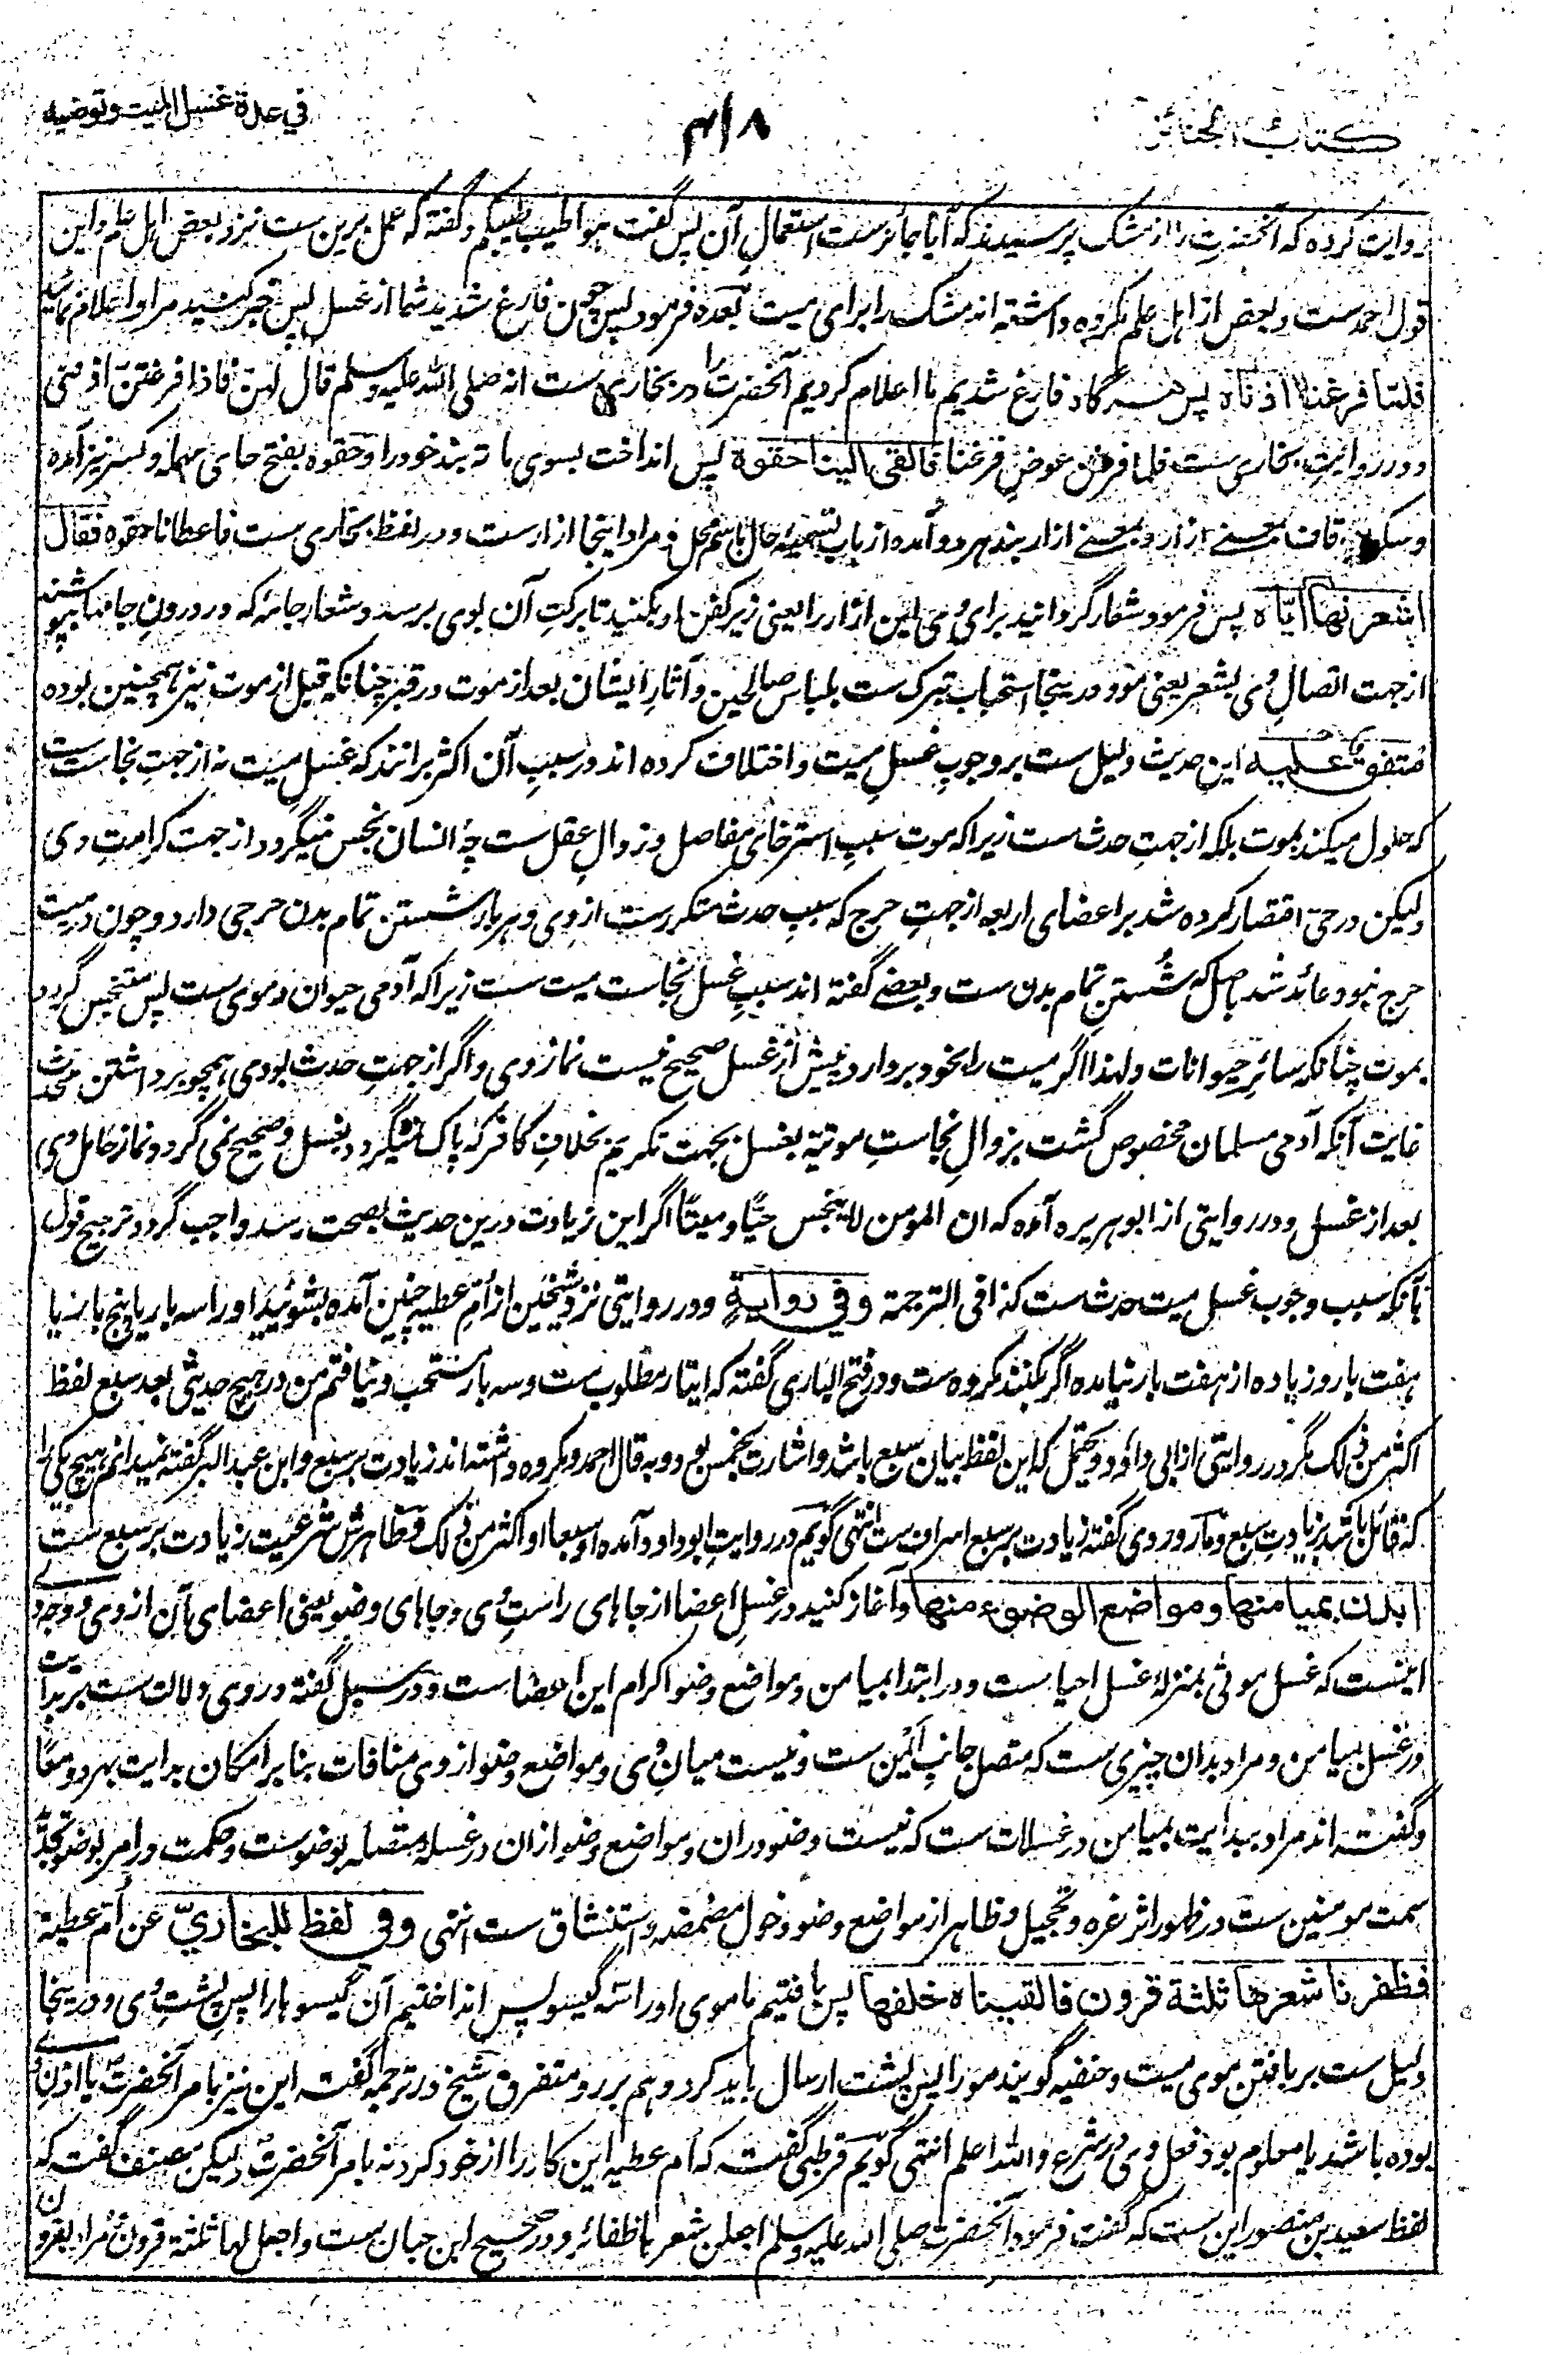 كتاب الجنائز
۴۱۸
في عدة غسل الميت وتوضيه
روایت کرده که آنحضرت را از مشک پرسیدند که آیا جائزست استعمالِ آن پس گفت هو اطیب طیبکم و گفته که عمل برین ست نزد بعض اہل علم و این
قول احمدست و بعض از اہل علم مکروه داشته اند مشک را برای میت بعده فرمود پس چون فارغ شدید شما از غسل پس خبر کنید مرا و اعلام نمائید
فلما فرغنا اذناه پس هرگاه فارغ شدیم ما اعلام کردیم آنحضرت را در بخاری ست انه صلی الله علیه وسلم قال لهن فاذا فرغتن اذننی
و در روایتِ بخاری ست فلما فرغن عوضِ فرغنا فالقى الينا حقوه پس انداخت بسوی ما ته بند خود را و حقوه بفتح حای مهمله و کسر نیز آمده
و سکون قاف بمعنے ازار و بمعنے ازار بند هر دو آمده از باب تسمیهٔ حال باسم محل و مراد اینجا ازارست و در لفظ بخاری ست فاعطانا حقوه فقال
اشعرنها اياه پس فرمود شعار گردانید برای وی این ازار را یعنی زیر کفن او بکنید تا برکتِ آن بوی برسد و شعار جامه که در درونِ جامها پوشند
از جهت اتصالِ وی بشعر یعنی مو و درینجا استحباب تبرک ست بلباس صالحین و آثارِ ایشان بعد از موت در قبر چنانکه قبل از موت نیز همچنین بوده
متفق عليه این حدیث دلیل ست بر وجوبِ غسلِ میت و اختلاف کرده اند در سببِ آن اکثر برانند که غسلِ میت نه از جهتِ نجاست ست
که حلول میکند بموت بلکه از جهتِ حدث ست زیرا که موت سببِ استرخای مفاصل و زوالِ عقل ست چه انسان نجس نمیگردد از جهت کرامتِ وی
ولیکن در حی اقتصار کرده شد بر اعضای اربعه از جهتِ حرج که سببِ حدث متکررست از وی و هر بار شستنِ تمام بدن حرجی دارد و چون در میت
حرج نبود عائد شد باصل که شستنِ تمام بدن ست و بعضے گفته اند سببِ غسل نجاست میت ست زیرا که آدمی حیوان دموی ست پس متنجس گردد
بموت چنانکه سائرِ حیوانات و لهذا اگر میت را بخود بردارد پیش از غسل صحیح نیست نماز وی و اگر از جهتِ حدث بودی همچو برداشتن محدث
غایت آنکه آدمی مسلمان مخصوص گشت بزوالِ نجاستِ موتیه بغسل بجهت تکریم بخلافِ کافر که پاک نمیگردد بغسل و صحیح نمی گردد نماز حامل وی
بعد از غسل و در روایتی از ابو هریره آمده که ان المومن لا ینجس حیًا و میتًا اگر این زیادت درین حدیث بصحت رسد واجب گردد ترجیح قول
بآنکه سبب وجوب غسل میت حدث ست کذا فی الترجمة وفي رواية و در روایتی نزد شیخین از اُمِّ عطیه چنین آمده بشوئید او را سه بار یا پنج بار یا
هفت بار و زیاده از هفت بار نیامده اگر بکنند مکروه ست و در فتح الباری گفته که ایتار مطلوب ست و سه بار مستحب و نیافتم من در هیچ حدیثی بعد سبع لفظ
اکثر من ذلک مگر در روایتی از ابی داؤد و محتمل که این لفظ بیان سبع باشد و اشارت بخمس بود و به قال احمد و مکروه داشته اند زیادت بر سبع و ابن عبدالبر گفته نمیدانم هیچ یکی را
که قائل باشد بزیادتِ سبع و ماوردی گفته زیادت بر سبع اسراف ست انتهی گویم در روایتِ ابوداود آمده او سبعا او اکثر من ذلک و ظاهرش شرعیت زیادت بر سبع ست
ابدأن بميامنها ومواضع الوضوء منها و آغاز کنید در غسلِ اعضا از جاهای راستِ وی و جاهای وضو یعنی اعضای آن از وی و وجه وے
اینست که غسل موتی بمنزلهٔ غسل احیاست و در ابتدا بمیامن و مواضع وضو اکرام این اعضاست و در سبل گفته در وی دلالت ست بر بدایت
در غسل بمیامن و مراد بدان چیزی ست که متصل جانبِ ایمن ست و نیست میانِ وی و مواضع وضو از وی منافات بنا بر امکان بدایت بهر دو معًا
و گفته اند مراد ببدایت بمیامن در غسلات ست که نیست وضو دران و مواضع وضو ازان در غسلهٔ متصله بوضوست و حکمت در امر بوضو تجدیدِ
سمت مومنین ست در ظهور اثر غره و تحجیل و ظاهر از مواضع وضو دخول مضمضه و استنشاق ست انتهی وفي لفظ للبخاريّ عن اُمّ عطیة
فظفرنا شعرها ثلثة قرون فالقيناه خلفها پس بافتیم ما موی او را سه گیسو پس انداختیم آن گیسوها را پسِ پشتِ وی و درینجا
دلیل ست بر بافتنِ موی میت و حنفیه گویند مو را پس پشت ارسال باید کرد و هم بر رو متفرق شیخ در ترجمه گفته این نیز بامر آنحضرت یا اذنِ وے
بوده باشد یا معلوم بود فعل وی در شرع والله اعلم انتهی گویم قرطبی گفته که اُم عطیه این کار را از خود کرد نه بامر آنحضرت ولیکن مصنف گفته که
لفظ سعید بن منصور این ست که گفت فرمود آنحضرت صلی الله علیه وسلم اجعلن شعرها ظفائر و در صحیح ابن حبان ست واجعلن لها ثلثة قرون مراد بقرون